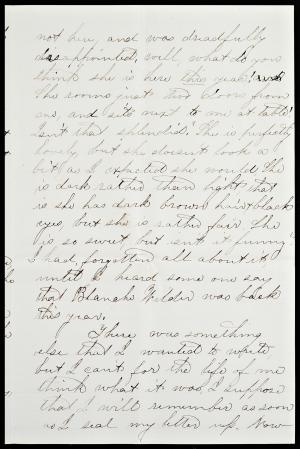 not here, and was dreadfully
disappointed, well, what do you
think she is here this year! and
she rooms just two doors from
me, and sits next to me at table!
Isn't that splendid! She is perfectly
lovely, but she doesn't look a
bit as I expected she would. She
is dark rather than light that
is she has dark brown hair & black
eyes, but she is rather fair. She
is so sweet but isn't it funny!
I had forgotten all about it
until I heard some one say
that Blanche Wilder was back
this year.
There was something
else that I wanted to write
but I can't for the life of me
think what it was, I suppose
that I will remember as soon
as I seal my letter up. Now